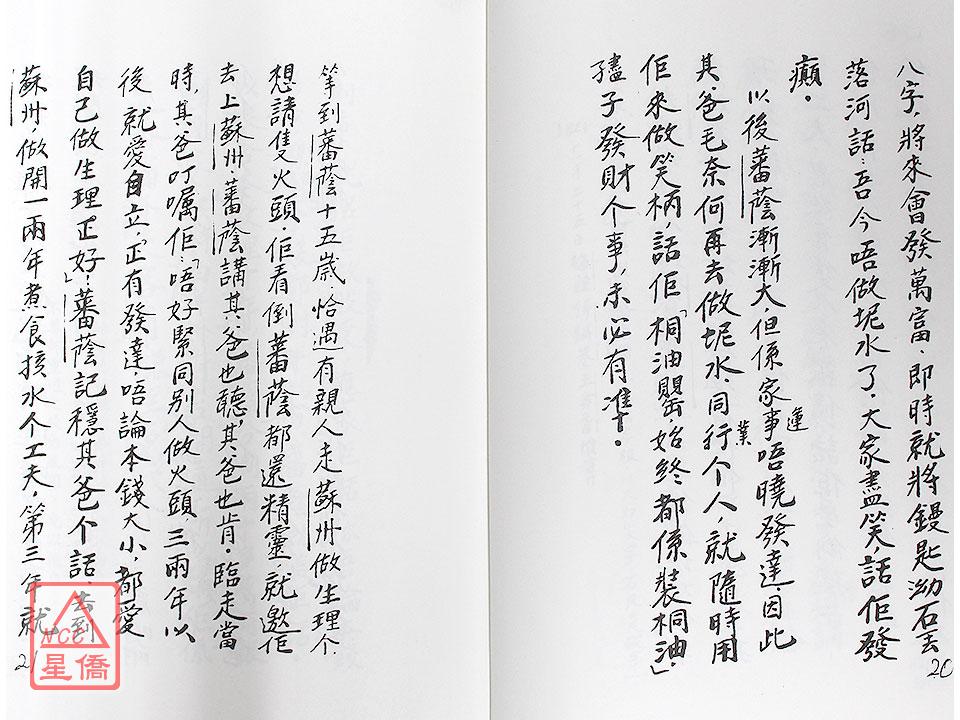 八字，將來會發萬富，即時就將鏝匙泑石丟
落河話：吾今唔做坭水了，大家盡笑，話佢發
癲。
以後蕃蔭漸漸大，但係家事運唔曉發達，因此
其爸毛奈何再去做坭水，同行業个人，就隨時用
佢來做笑柄，話佢「桐油罌，始終都係裝桐油，」
孻子發財个事，未必有准了。
20
等到蕃蔭十五歲，恰遇有親人走蘇州做生理个，
想請隻火頭，佢看倒蕃蔭都還精靈，就邀佢
去上蘇州，蕃蔭講其爸也聽，其爸也肯。臨走當
時，其爸叮囑佢：「唔好緊同別人做火頭，三兩年以
後就愛自立，正有發達，唔論本錢大小，都愛
自己做生理正好！」蕃蔭記穩其爸个話，去到
蘇州，做開一兩年煮食接水个工夫，第三年就
21
NCC
星僑